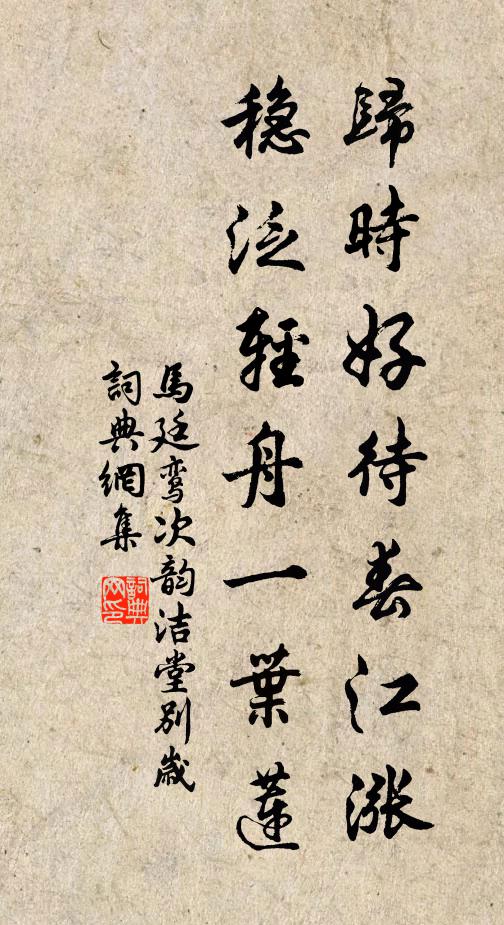 歸時好待春江漲
穩泛輕舟一葉蓮
馬廷鸞次韵洁堂別歲
詞典網集
詞典
网印